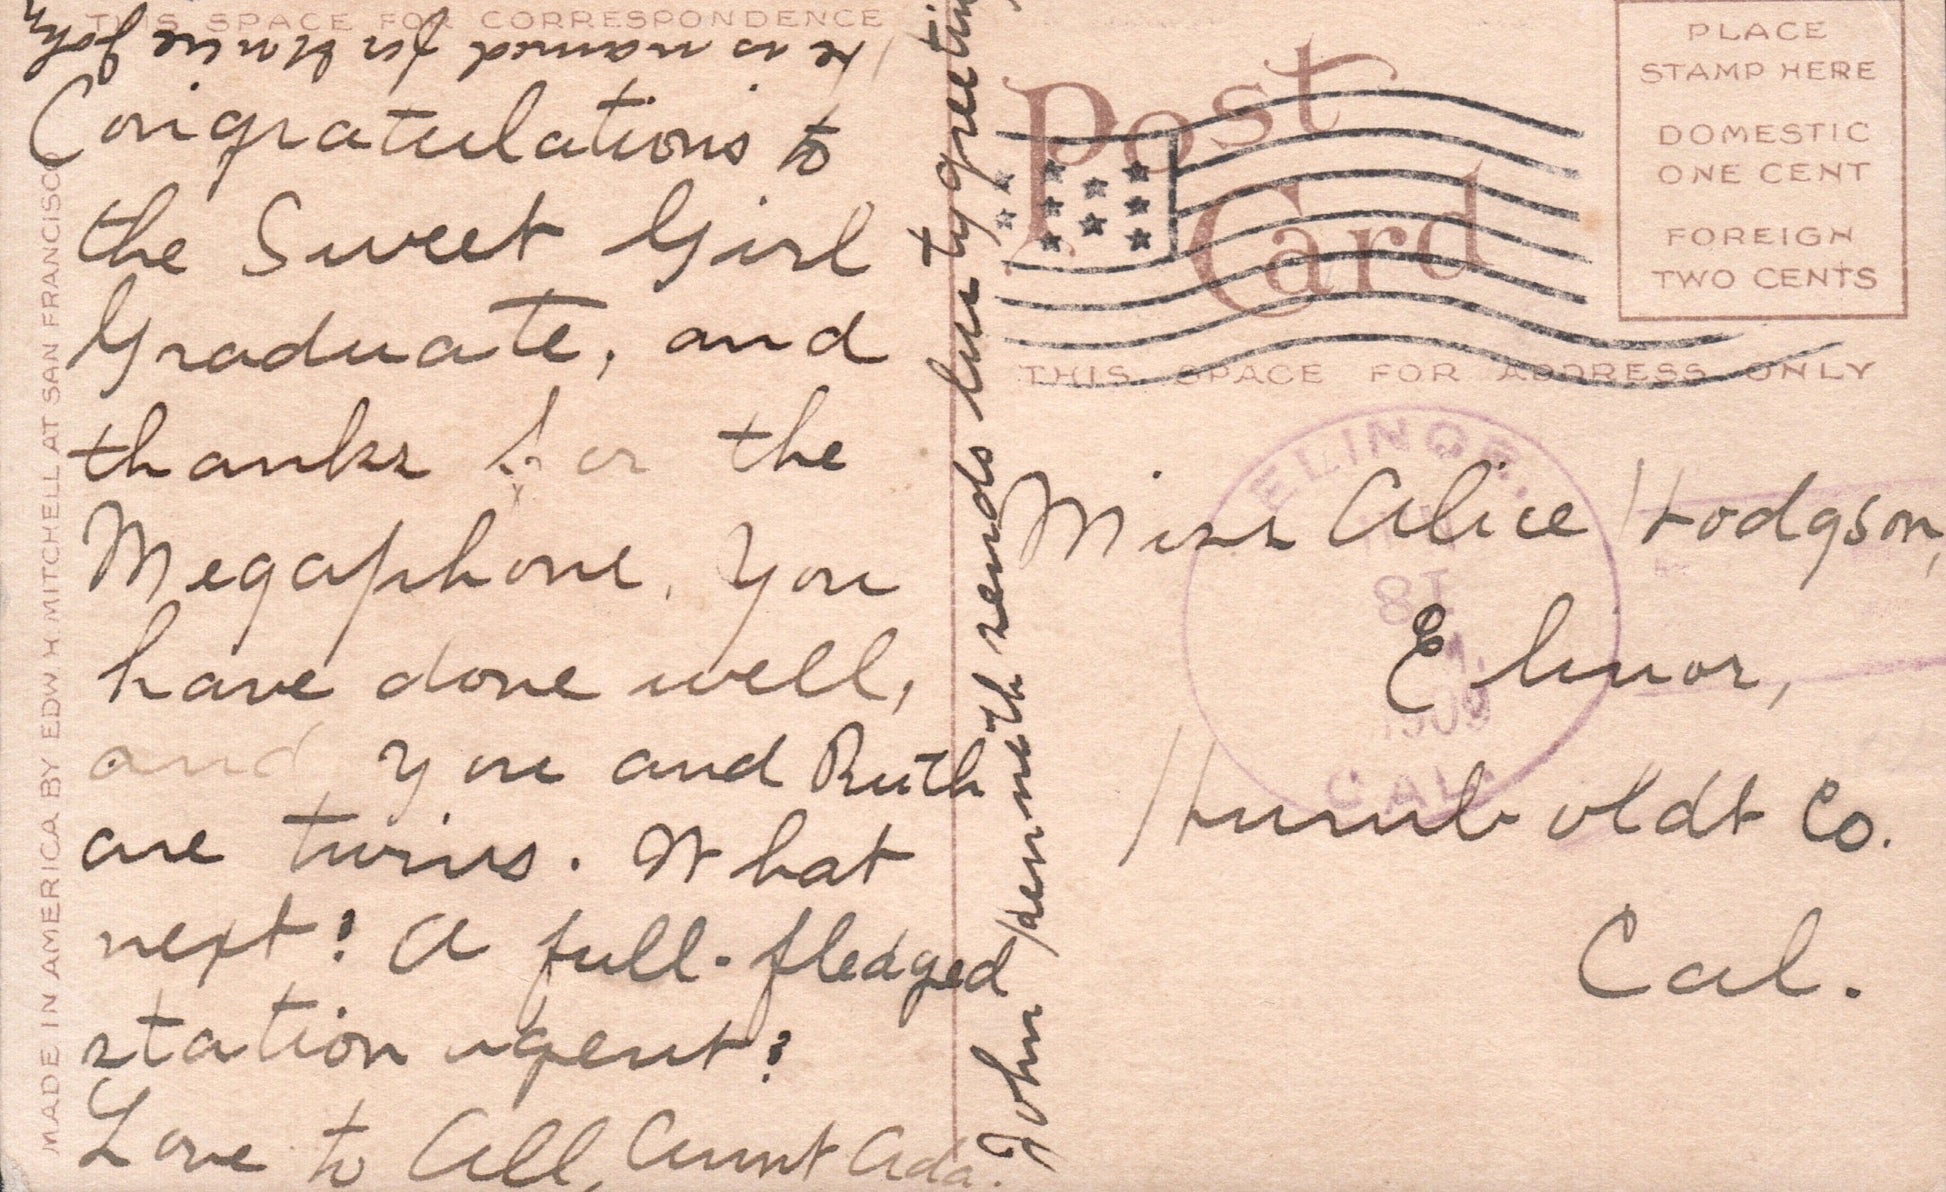 THIS SPACE FOR CORRESPONDENCE
Congratulations to
the Sweet Girl
Graduate, and
thanks for the
Megaphone. You
have done well,
and you and Ruth
are twins. What
next? A full-fledged
station agent?
Love to All, Aunt Ada.
John sends his greeting
He is named for Uncle John
MADE IN AMERICA BY EDW. H. MITCHELL AT SAN FRANCISCO
Post
Card
PLACE
STAMP HERE
DOMESTIC
ONE CENT
FOREIGN
TWO CENTS
THIS SPACE FOR ADDRESS ONLY
ELINOR.
18
1909
CAL.
Miss Alice Hodgson,
Elinor,
Humboldt Co.
Cal.